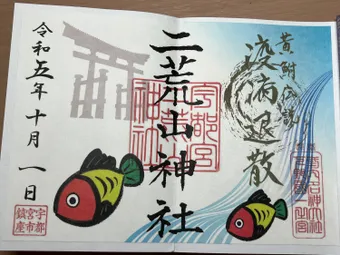 黄鮒伝説
疫病退散
二荒山神社
宇都宮
二荒山
神社
令和五年十月一日
宇都
宮市
鎮座